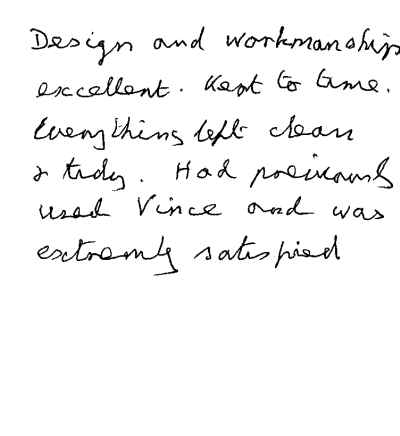 Design and workmanship
excellent. Kept to time.
Everything left clean
& tidy. Had previously
used Vince and was
extremly satisfied